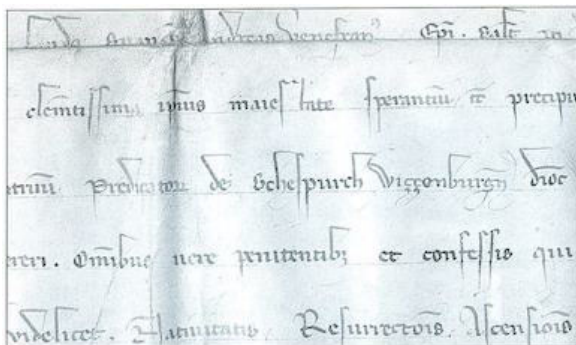 Andreas Venefran⁹ Ep̄i. sal̄t in
clem̄tissima ip̄ius maiestate sperantiū tc̄ precipu
atrum Predicator de Schespurch Wiẓẓonburgn̄ dioc
reri. Om̄ibus uere penitentibȝ et confessis qui
videlicet. Natiuitatis. Resurrectoīs. Ascensiōis